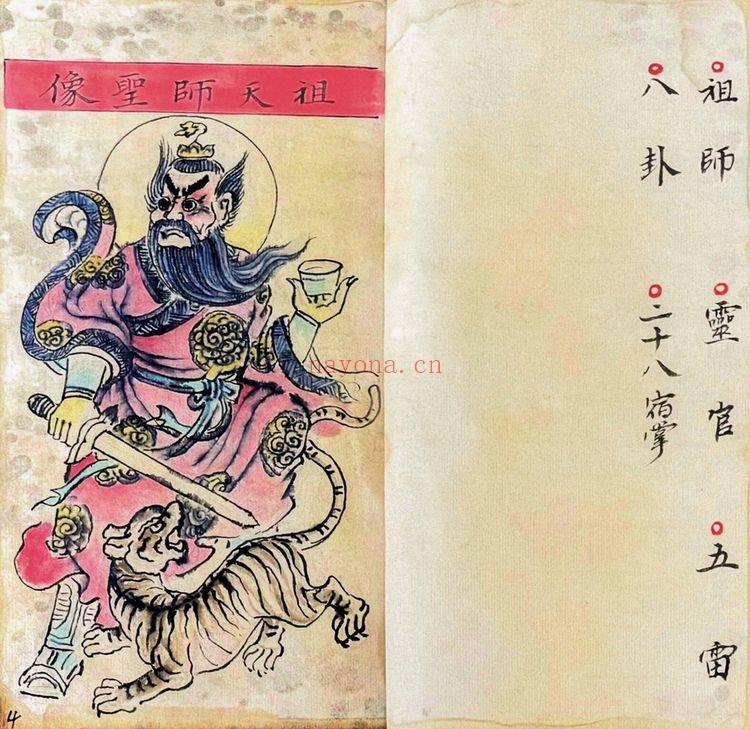 祖師 靈官 五雷
八卦 二十八宿掌
祖天師聖像
nayona.cn
4